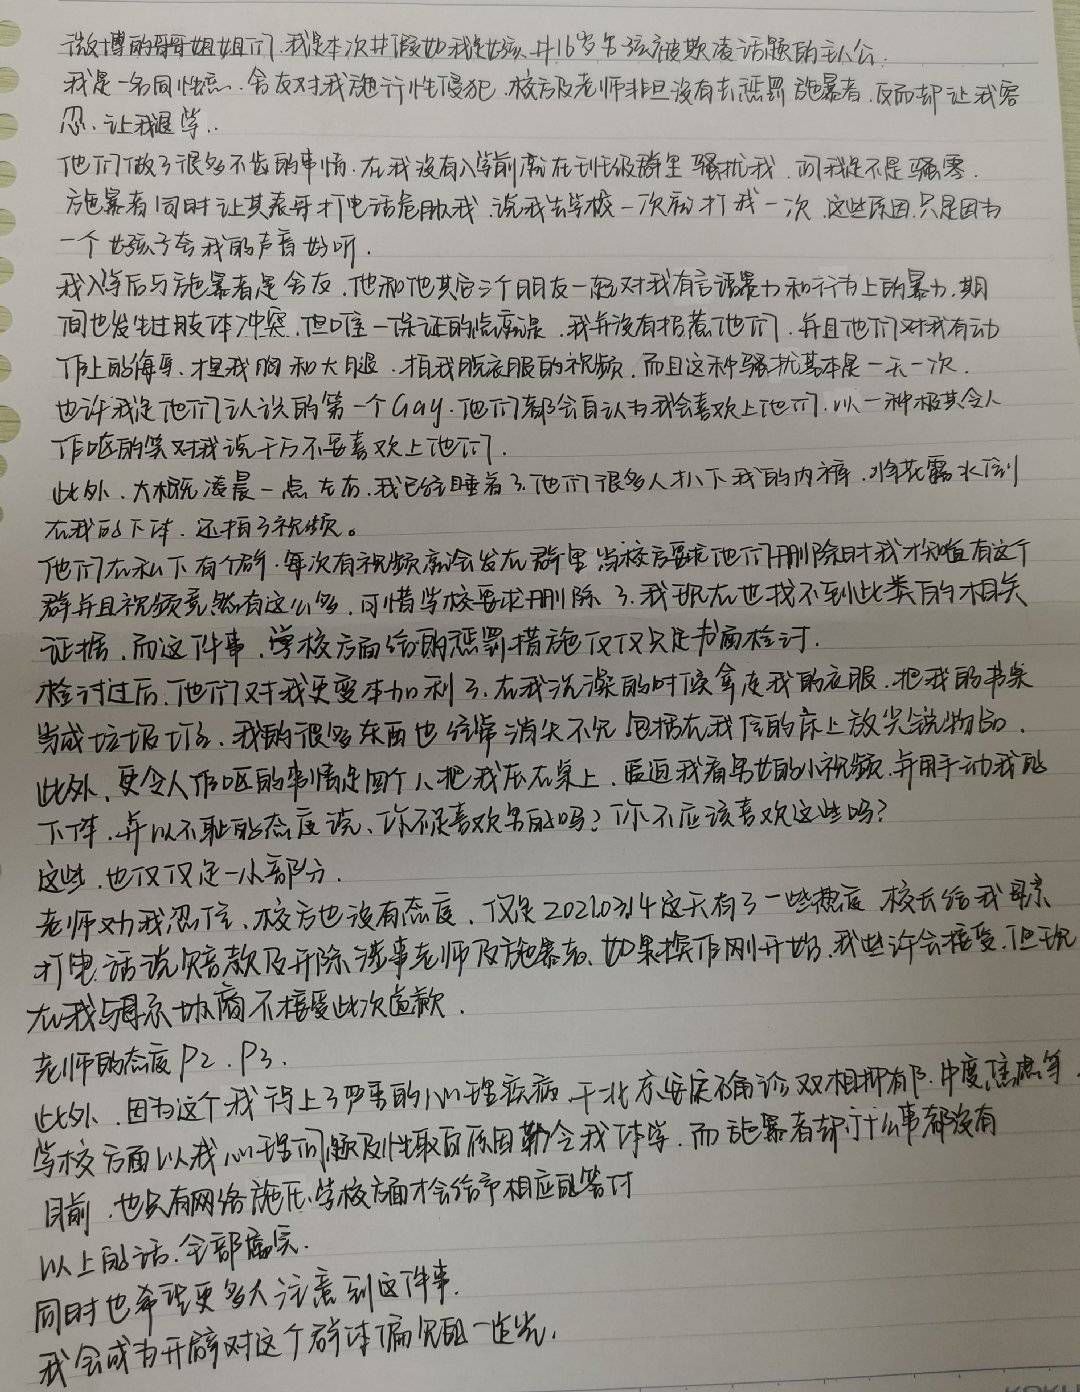 微博的哥哥姐姐们,我是本次#假如我是女孩#16岁男孩被欺凌话题的主人公.
我是一名同性恋.舍友对我施行性侵犯.校方及老师非但没有去惩罚施暴者.反而却让我容
忍.让我退学..
他们做了很多不齿的事情.在我没有入学前就在班级群里骚扰我.问我是不是骚零.
施暴者同时让其表哥打电话危胁我.说我去学校一次就打我一次.这些原因.只是因为
一个女孩子夸我的声音好听.
我入学后与施暴者是舍友.他和他其它三个朋友一起对我有言语暴力和行为上的暴力.期
间也发生过肢体冲突.但唯一保证的点就是.我并没有招惹他们.并且他们对我有动
作上的侮辱.捏我胸和大腿.拍我脱衣服的视频.而且这种骚扰基本是一天一次.
也许我是他们认识的第一个Gay.他们都会自认为我会喜欢上他们.以一种极其令人
作呕的笑对我说千万不要喜欢上他们.
此外.大概凌晨一点左右.我已经睡着了.他们很多人扒下我的内裤.将花露水倒
在我的下体.还拍了视频。
他们在私下有个群.每次有视频就会发在群里 当校方要求他们删除时我才知道有这个
群并且视频竟然有这么多.可惜学校要求删除了.我现在也找不到此类的相关
证据.而这件事.学校方面给的惩罚措施仅仅只是书面检讨.
检讨过后.他们对我更变本加利了.在我洗澡的时候拿走我的衣服.把我的书桌
当成垃圾堆.我的很多东西也经常消失不见 包括在我住的床上放尖锐物品.
此外.更令人作呕的事情是四个人把我压在桌上.逼迫我看男女的小视频.并用手动我的
下体.并以不耻的态度说、你不是喜欢男的吗?你不应该喜欢这些吗?
这些.也仅仅是一小部分.
老师劝我忍住、校方也没有态度.仅仅20210314这天有了一些热度.校长给我母亲
打电话说赔款及开除涉事老师及施暴者.如果操作刚开始.我也许会接受.但现
在我与母亲协商不接受此次道歉.
老师的态度P2.P3.
此外.因为这个我得上了严重的心理疾病.于北京安定确诊双相抑有郁.中度焦虑等.
学校方面以我心理问题及性取向原因勒令我休学.而施暴者却什么事都没有
目前.也只有网络施压.学校方面才会给予相应的答付
以上的话.全部属实.
同时也希望更多人注意到这件事.
我会成为开辟对这个群体偏见的一道光.